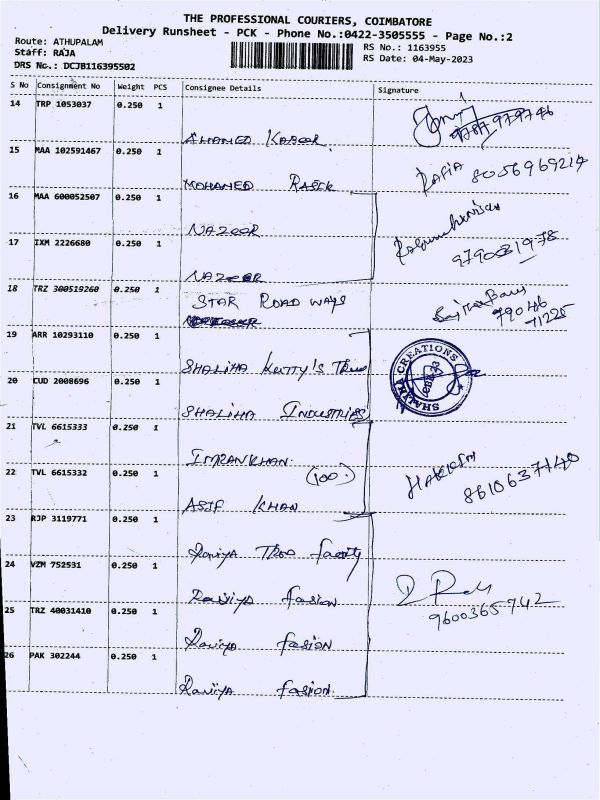 THE PROFESSIONAL COURIERS, COIMBATORE
Delivery Runsheet - PCK - Phone No.:0422-3505555 - Page No.:2
Route: ATHUPALAM
RS No.: 1163955
Staff: RAJA
RS Date: 04-May-2023
DRS No.: DCJB116395502
S No Consignment No Weight PCS Consignee Details Signature
14 TRP 1053037 0.250 1
AHAMED KABEER
15 MAA 102591467 0.250 1
RAFIA 8056969214
MOHAMED RAFIK
16 MAA 600052507 0.250 1
NAZEER
17 IXM 2226680 0.250 1
9790031978
NAZEER
18 TRZ 300519260 0.250 1
STAR ROAD WAYS
79046
71225
19 ARR 10293110 0.250 1
SHALIHA Kutty's
SHALIHA CREATIONS
20 CUD 2008696 0.250 1
SHALIHA INDUSTRIES
21 TVL 6615333 0.250 1
IMRANKHAN
22 TVL 6615332 0.250 1
(100)
HAKKIM
8610637140
ASIF KHAN
23 RJP 3119771 0.250 1
24 VZM 752531 0.250 1
fasion
9600365742
25 TRZ 40031410 0.250 1
Raviya fasion
26 PAK 302244 0.250 1
Raviya fasion